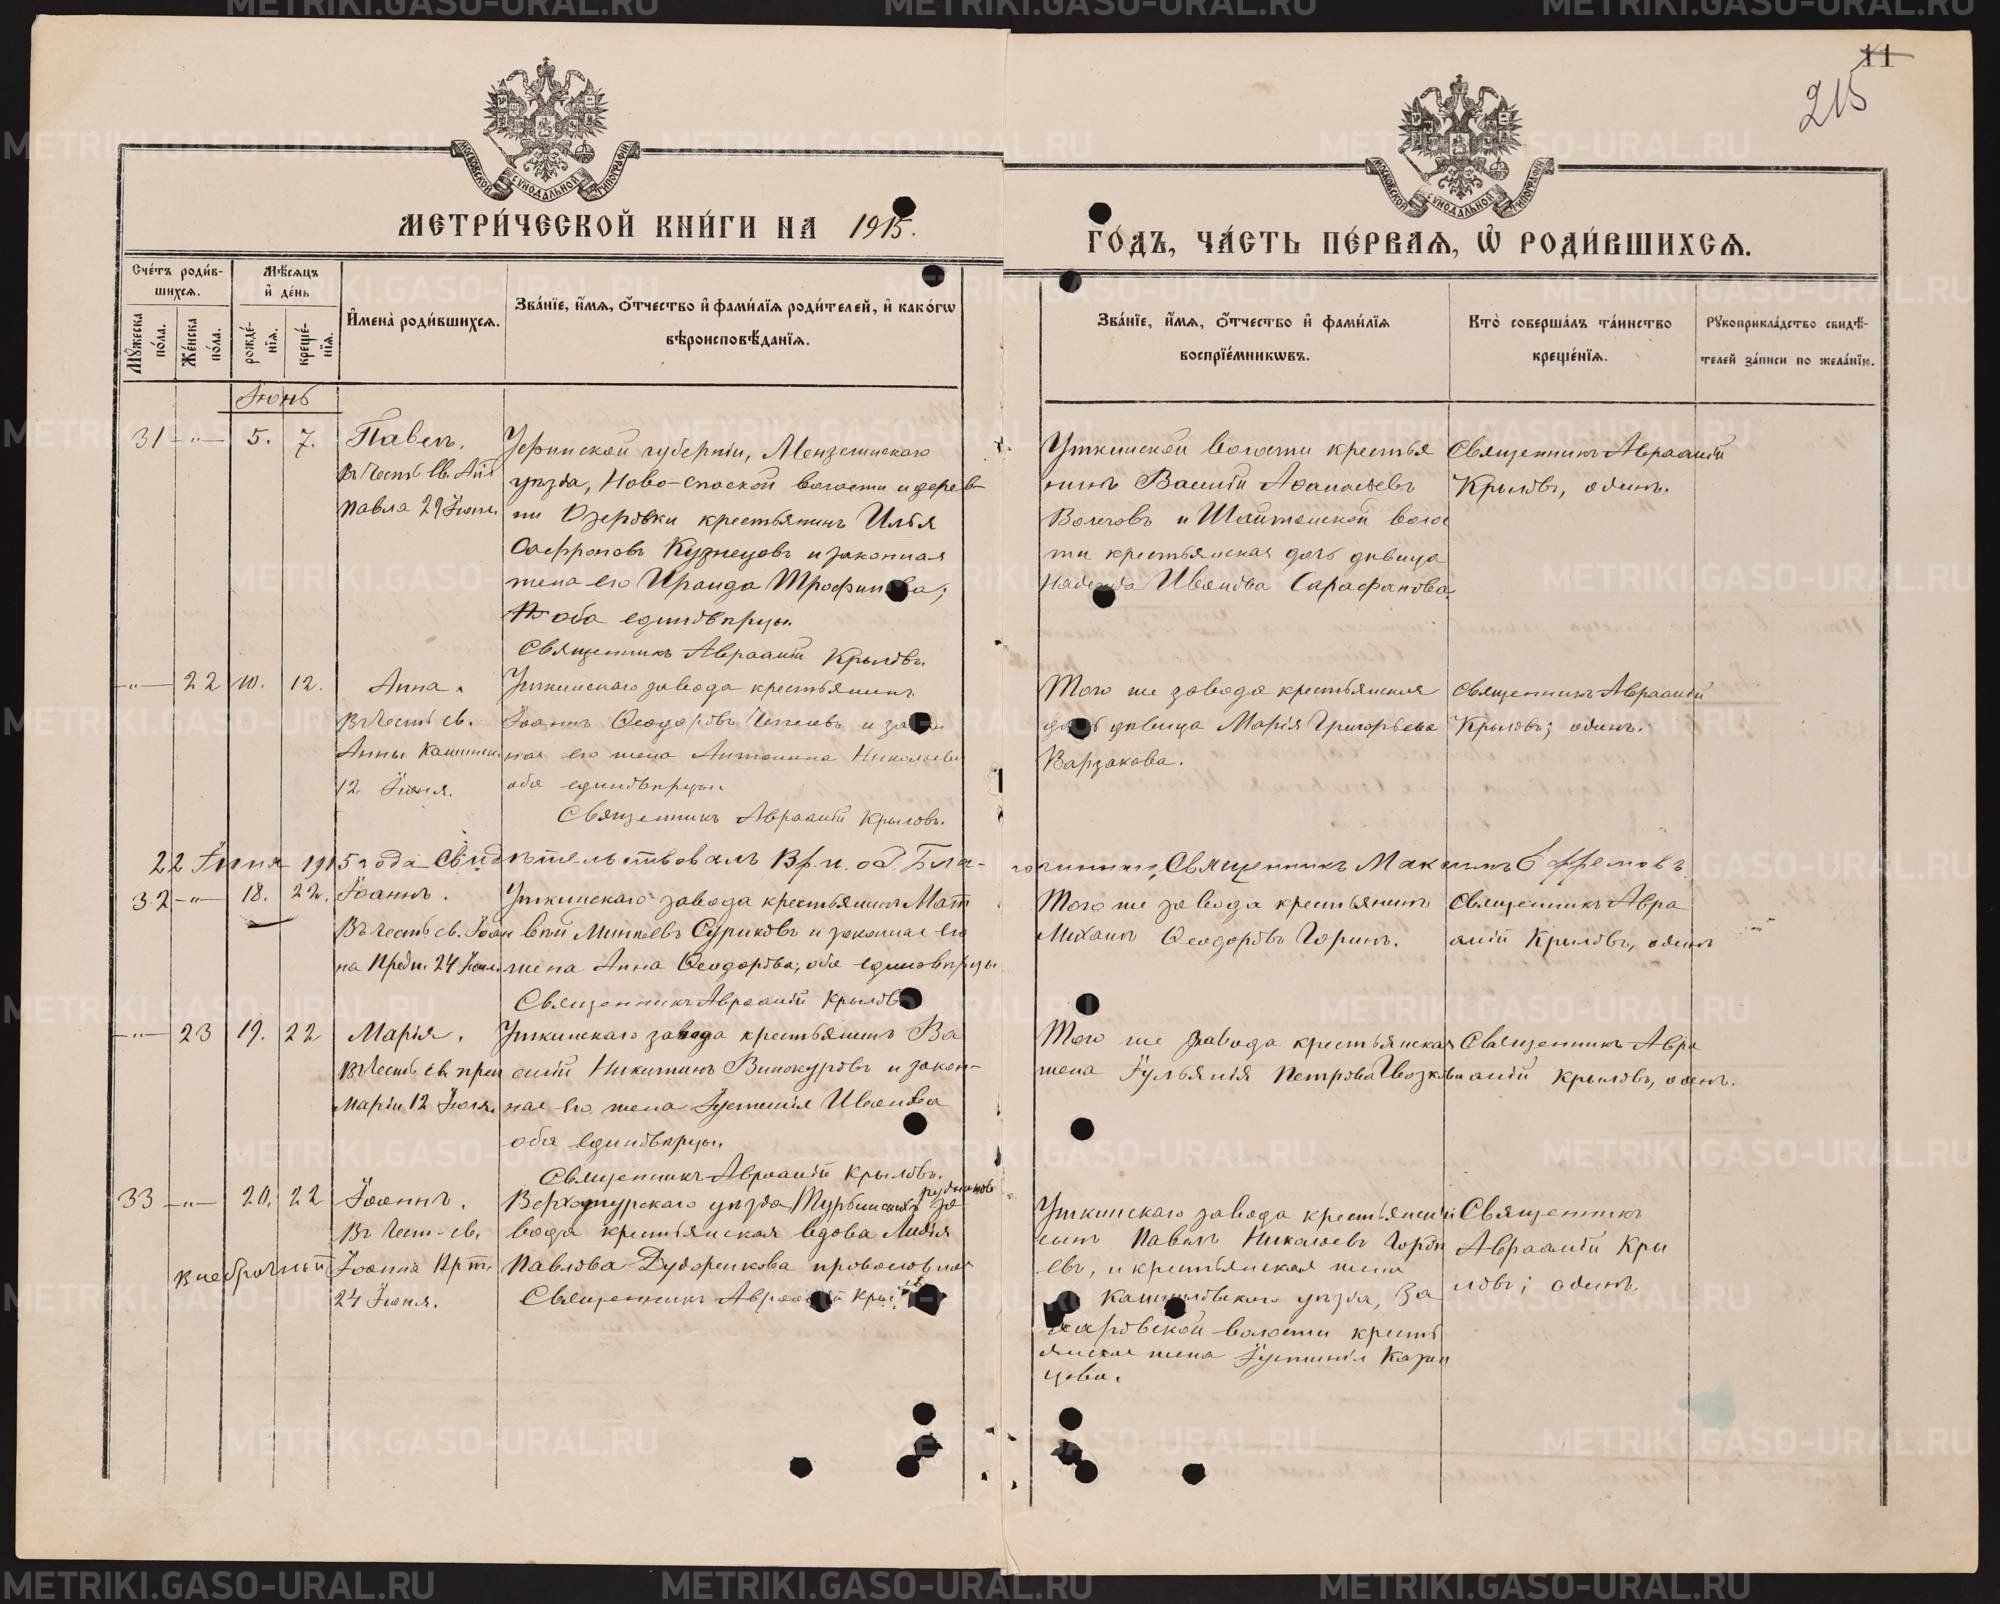 11
215
МОСКОВСКОЙ СѴНОДАЛЬНОЙ ТИПОГРАФІИ
МОСКОВСКОЙ СѴНОДАЛЬНОЙ ТИПОГРАФІИ
МЕТРИ́ЧЕСКОЙ КНИ́ГИ НА 1915.
ГО́ДЪ, ЧА́СТЬ ПЕ́РВАѦ, Ѡ҆ РОДИ́ВШИХСѦ.
Сче́тъ роди́в-
шихсѧ.
Мѣ́сѧцъ
и҆ де́нь
Мꙋ́жеска
по́ла.
Же́нска
по́ла.
рожде́-
нїѧ.
креще́-
нїѧ.
И҆мена̀ роди́вшихсѧ.
Зва́нїе, и҆́мѧ, ѻ҆́тчество и҆ фами́лїѧ роди́телей, и҆ како́гѡ
вѣроисповѣ́данїѧ.
Зва́нїе, и҆́мѧ, ѻ҆́тчество и҆ фами́лїѧ
воспрїе́мникѡвъ.
Кто̀ соверша́лъ та́инство
креще́нїѧ.
Рꙋкоприкла́дство свидѣ́-
телей за́писи по жела́нїю.
Іюнь
31 —"— 5. 7. Павелъ.
Въ честь св. Ап
Павла 29 Іюня.
Уфимской губерніи, Мензелинскаго
уѣзда, Ново-спаской волости и дерев-
ни Озеровки крестьянинъ Илья
Сафроновъ Кузнецовъ и законная
жена его Ираида Трофимова;
оба единовѣрцы.
Священникъ Авраамій Крыловъ.
Уткинской волости крестья
нинъ Василій Аѳанасьевъ
Волеговъ и Шайтанской воло
сти крестьянская дочь дѣвица
Надежда Иванова Сарафанова.
Священникъ Авраамій
Крыловъ, одинъ.
—"— 22 10. 12. Анна.
Въ честь св.
Анны Кашинск.
12 Іюня.
Уткинскаго завода крестьянинъ
Іоаннъ Ѳеодоровъ и закон
ная его жена Антонина Николаева
оба единовѣрцы.
Священникъ Авраамій Крыловъ.
Того же завода крестьянская
дочь дѣвица Марія Григорьева
Варзакова.
Священникъ Авраамій
Крыловъ; одинъ.
22 Іюня 1915 года Свидѣтельствовалъ Вр. и. об. Бла-
гочиннаго, Священникъ Максимъ Ефремовъ.
32 —"— 18. 22. Іоаннъ.
Въ честь св. Іоан
на Предт. 24 Іюня.
Уткинскаго завода крестьянинъ Мат
вѣй Минѣевъ Суриковъ и законная его
жена Анна Ѳеодорова; оба единовѣрцы
Священникъ Авраамій Крыловъ
Того же завода крестьянинъ
Михаилъ Ѳеодоровъ Горинъ.
Священникъ Авра
амій Крыловъ, одинъ
—"— 23 19. 22 Марія.
Въ честь св. преп
Маріи 12 Іюля.
Уткинскаго завода крестьянинъ Ва
силій Никитинъ Винокуровъ и закон-
ная его жена Іустинія Иванова
оба единовѣрцы.
Священникъ Авраамій Крыловъ.
Того же завода крестьянская
жена Іульянія Петрова Гвозкова
Священникъ Авра
амій Крыловъ, одинъ.
33 —"— 20. 22 Іоаннъ.
Въ чест- св.
Внебрачный
Іоанна Прт.
24 Іюня.
Верхотурскаго уѣзда, Турьинскихъ рудников за
вода крестьянская вдова Лидія
Павлова Дудоренкова православная
Священникъ Авраамій Кры
Уткинскаго завода крестьянскій
сынъ Павелъ Николаевъ Горди
евъ, и крестьянская жена
Камышловскаго уѣзда, За
харовской волости кресть
янская жена Іустинія Казан
цова.
Священникъ
Авраамій Кры
ловъ; одинъ.